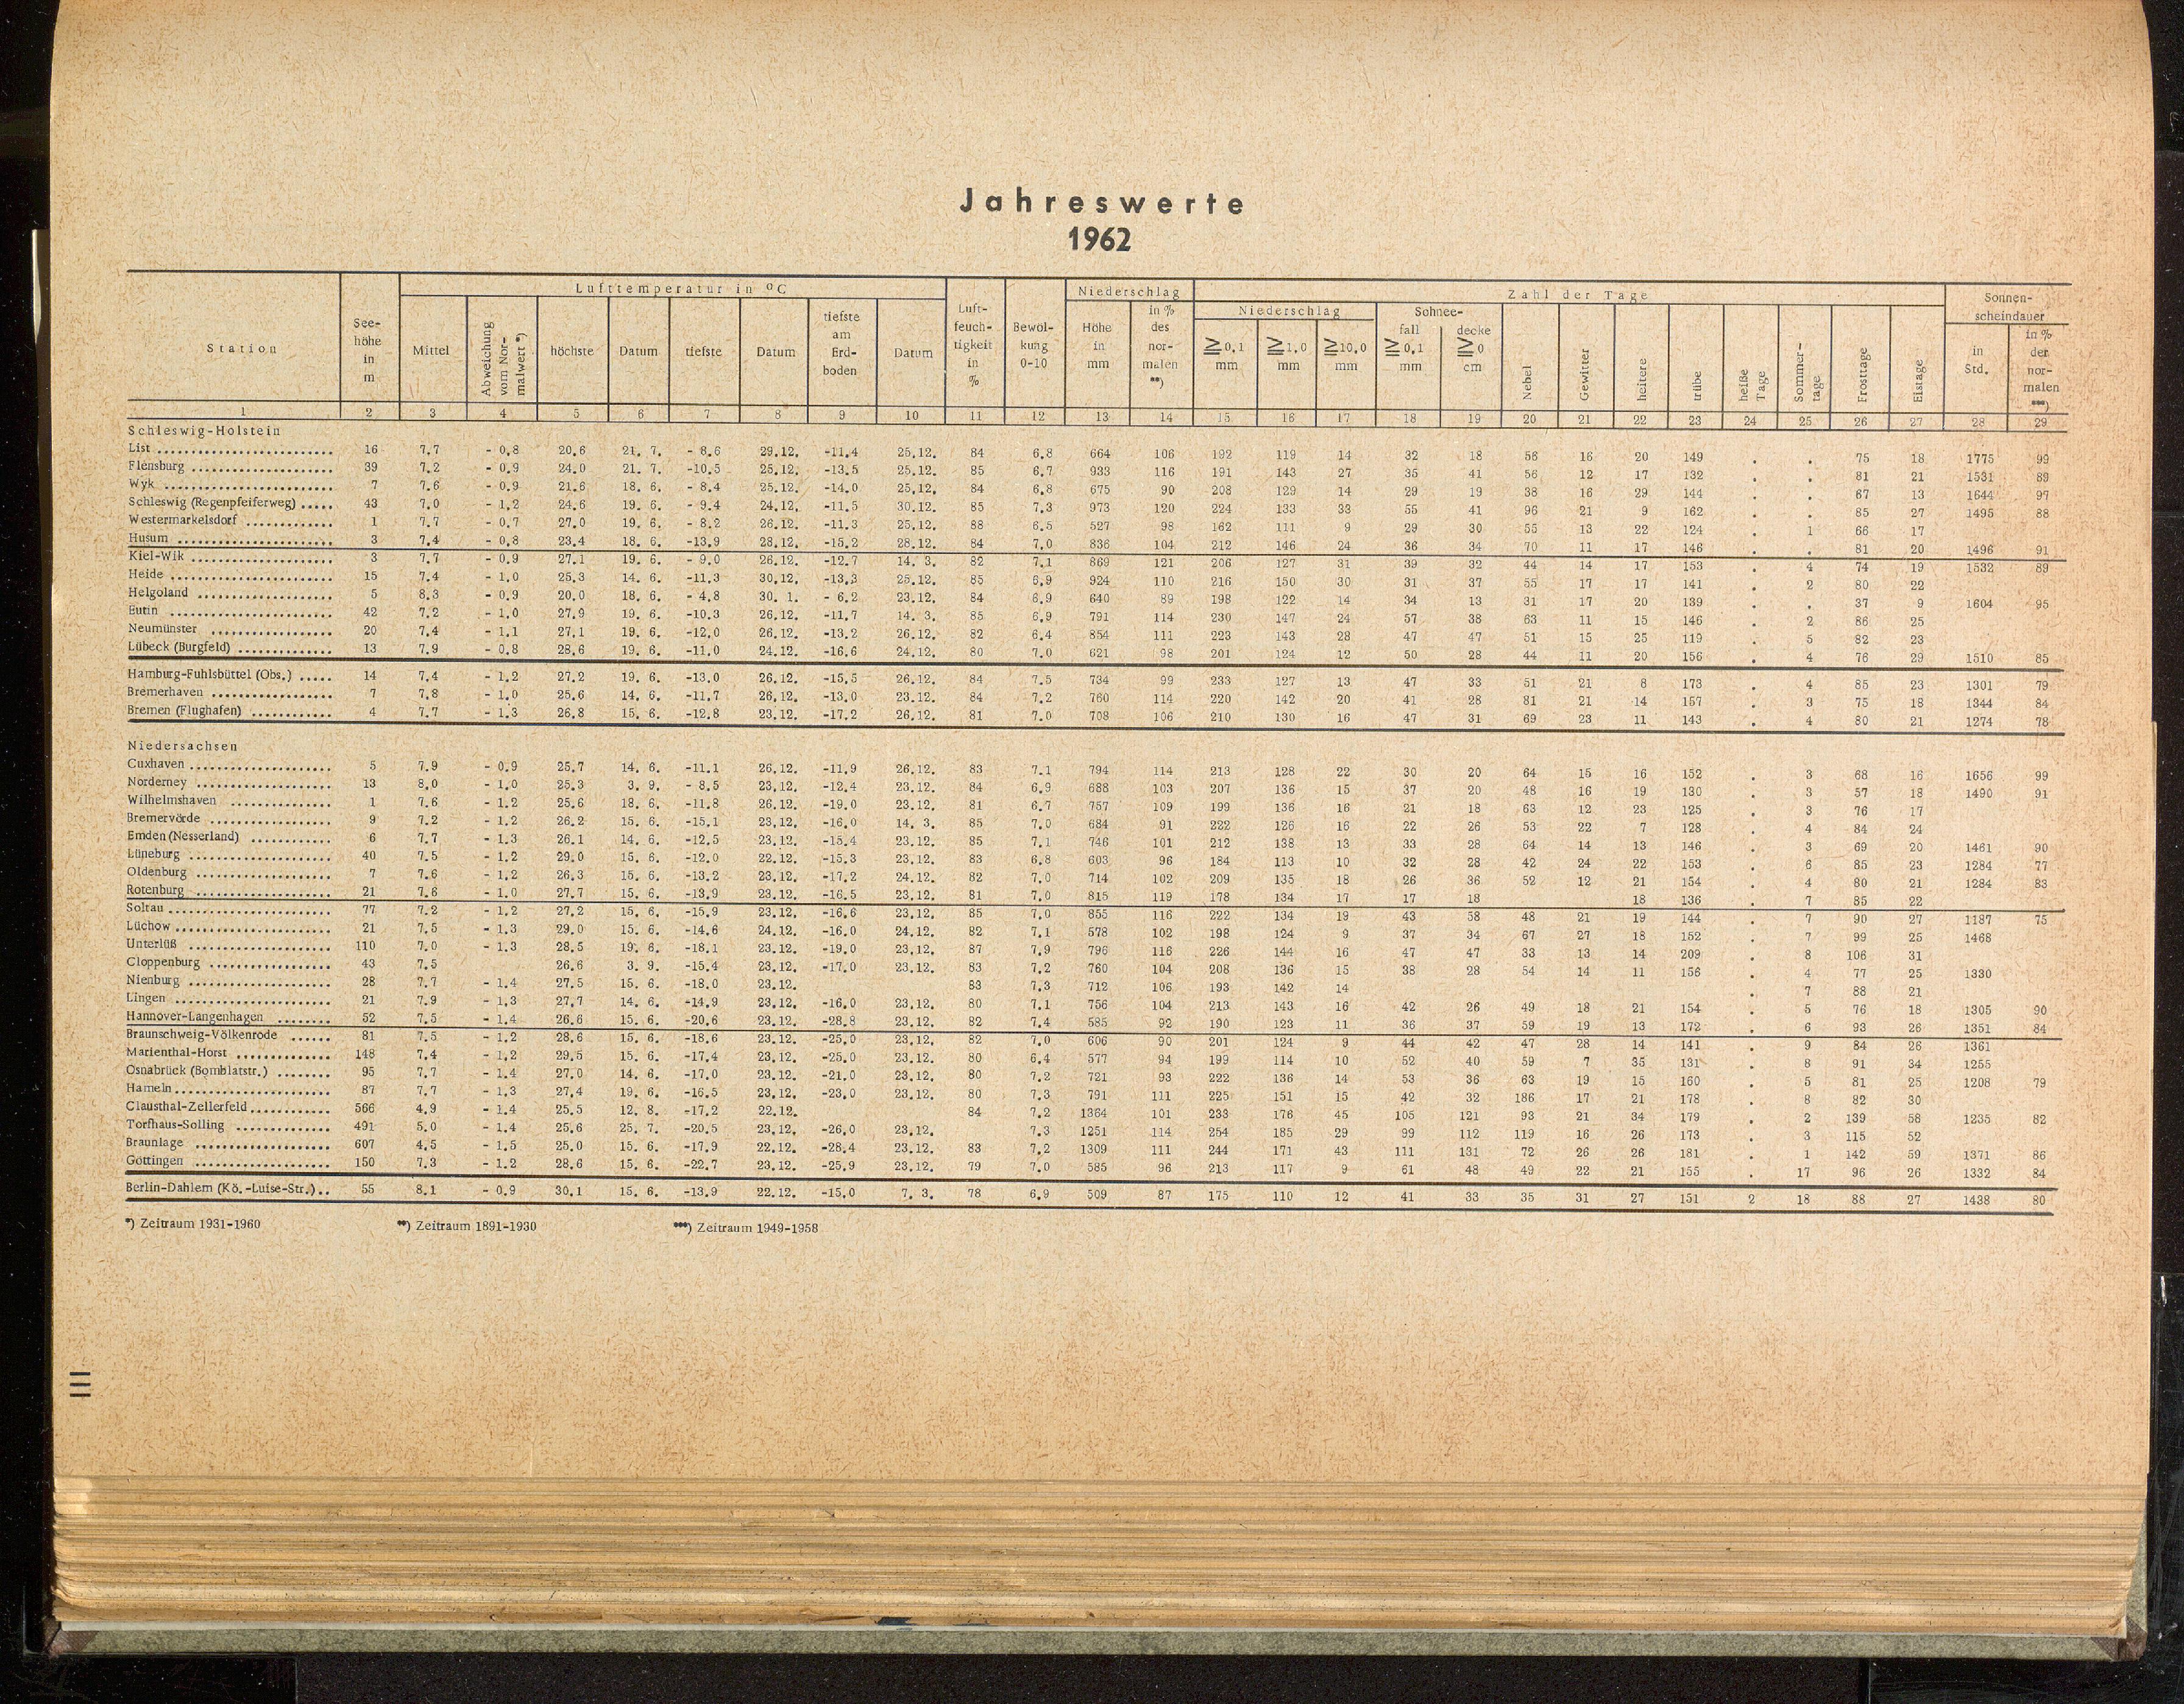 Jahreswerte
1962
Station
See-höhe in m
Lufttemperatur in °C
Mittel
Abweichung vom Nor-malwert *)
höchste
Datum
tiefste
Datum
tiefste am Erd-boden
Datum
Luft-feuch-tigkeit in %
Bewöl-kung 0-10
Niederschlag
Höhe in mm
in % des nor-malen **)
Zahl der Tage
Niederschlag
≧0,1 mm
≧1,0 mm
≧10,0 mm
Schnee-
fall ≧0,1 mm
decke ≧0 cm
Nebel
Gewitter
heitere
trübe
heiße Tage
Sommer-tage
Frosttage
Eistage
Sonnen-scheindauer
in Std.
in % der nor-malen ***)
1 2 3 4 5 6 7 8 9 10 11 12 13 14 15 16 17 18 19 20 21 22 23 24 25 26 27 28 29
Schleswig-Holstein
List 16 7,7 - 0,8 20,6 21. 7. - 8,6 29.12. -11,4 25.12. 84 6,8 664 106 192 119 14 32 18 56 16 20 149 . . 75 18 1775 99
Flensburg 39 7,2 - 0,9 24,0 21. 7. -10,5 25.12. -13,5 25.12. 85 6,7 933 116 191 143 27 35 41 56 12 17 132 . . 81 21 1531 89
Wyk 7 7,6 - 0,9 21,6 18. 6. - 8,4 25.12. -14,0 25.12. 84 6,8 675 90 208 129 14 29 19 38 16 29 144 . . 67 13 1644 97
Schleswig (Regenpfeiferweg) 43 7,0 - 1,2 24,6 19. 6. - 9,4 24.12. -11,5 30.12. 85 7,3 973 120 224 133 33 55 41 96 21 9 162 . . 85 27 1495 88
Westermarkelsdorf 1 7,7 - 0,7 27,0 19. 6. - 8,2 26.12. -11,3 25.12. 88 6,5 527 98 162 111 9 29 30 55 13 22 124 . 1 66 17
Husum 3 7,4 - 0,8 23,4 18. 6. -13,9 28.12. -15,2 28.12. 84 7,0 836 104 212 146 24 36 34 70 11 17 146 . . 81 20 1496 91
Kiel-Wik 3 7,7 - 0,9 27,1 19. 6. - 9,0 26.12. -12,7 14. 3. 82 7,1 869 121 206 127 31 39 32 44 14 17 153 . 4 74 19 1532 89
Heide 15 7,4 - 1,0 25,3 14. 6. -11,3 30.12. -13,3 25.12. 85 6,9 924 110 216 150 30 31 37 55 17 17 141 . 2 80 22
Helgoland 5 8,3 - 0,9 20,0 18. 6. - 4,8 30. 1. - 6,2 23.12. 84 6,9 640 89 198 122 14 34 13 31 17 20 139 . . 37 9 1604 95
Eutin 42 7,2 - 1,0 27,9 19. 6. -10,3 26.12. -11,7 14. 3. 85 6,9 791 114 230 147 24 57 38 63 11 15 146 . 2 86 25
Neumünster 20 7,4 - 1,1 27,1 19. 6. -12,0 26.12. -13,2 26.12. 82 6,4 854 111 223 143 28 47 47 51 15 25 119 . 5 82 23
Lübeck (Burgfeld) 13 7,9 - 0,8 28,6 19. 6. -11,0 24.12. -16,6 24.12. 80 7,0 621 98 201 124 12 50 28 44 11 20 156 . 4 76 29 1510 85
Hamburg-Fuhlsbüttel (Obs.) 14 7,4 - 1,2 27,2 19. 6. -13,0 26.12. -15,5 26.12. 84 7,5 734 99 233 127 13 47 33 51 21 8 173 . 4 85 23 1301 79
Bremerhaven 7 7,8 - 1,0 25,6 14. 6. -11,7 26.12. -13,0 23.12. 84 7,2 760 114 220 142 20 41 28 81 21 14 157 . 3 75 18 1344 84
Bremen (Flughafen) 4 7,7 - 1,3 26,8 15. 6. -12,8 23.12. -17,2 26.12. 81 7,0 708 106 210 130 16 47 31 69 23 11 143 . 4 80 21 1274 78
Niedersachsen
Cuxhaven 5 7,9 - 0,9 25,7 14. 6. -11,1 26.12. -11,9 26.12. 83 7,1 794 114 213 128 22 30 20 64 15 16 152 . 3 68 16 1656 99
Norderney 13 8,0 - 1,0 25,3 3. 9. - 8,5 23.12. -12,4 23.12. 84 6,9 688 103 207 136 15 37 20 48 16 19 130 . 3 57 18 1490 91
Wilhelmshaven 1 7,6 - 1,2 25,6 18. 6. -11,8 26.12. -19,0 23.12. 81 6,7 757 109 199 136 16 21 18 63 12 23 125 . 3 76 17
Bremervörde 9 7,2 - 1,2 26,2 15. 6. -15,1 23.12. -16,0 14. 3. 85 7,0 684 91 222 126 16 22 26 53 22 7 128 . 4 84 24
Emden (Nesserland) 6 7,7 - 1,3 26,1 14. 6. -12,5 23.12. -15,4 23.12. 85 7,1 746 101 212 138 13 33 28 64 14 13 146 . 3 69 20 1461 90
Lüneburg 40 7,5 - 1,2 29,0 15. 6. -12,0 22.12. -15,3 23.12. 83 6,8 603 96 184 113 10 32 28 42 24 22 153 . 6 85 23 1284 77
Oldenburg 7 7,6 - 1,2 26,3 15. 6. -13,2 23.12. -17,2 24.12. 82 7,0 714 102 209 135 18 26 36 52 12 21 154 . 4 80 21 1284 83
Rotenburg 21 7,6 - 1,0 27,7 15. 6. -13,9 23.12. -16,5 23.12. 81 7,0 815 119 178 134 17 17 18 18 136 . 7 85 22
Soltau 77 7,2 - 1,2 27,2 15. 6. -15,9 23.12. -16,6 23.12. 85 7,0 855 116 222 134 19 43 58 48 21 19 144 . 7 90 27 1187 75
Lüchow 21 7,5 - 1,3 29,0 15. 6. -14,6 24.12. -16,0 24.12. 82 7,1 578 102 198 124 9 37 34 67 27 18 152 . 7 99 25 1468
Unterlüß 110 7,0 - 1,3 28,5 19. 6. -18,1 23.12. -19,0 23.12. 87 7,9 796 116 226 144 16 47 47 33 13 14 209 . 8 106 31
Cloppenburg 43 7,5 26,6 3. 9. -15,4 23.12. -17,0 23.12. 83 7,2 760 104 208 136 15 38 28 54 14 11 156 . 4 77 25 1330
Nienburg 28 7,7 - 1,4 27,5 15. 6. -18,0 23.12. 83 7,3 712 106 193 142 14 . 7 88 21
Lingen 21 7,9 - 1,3 27,7 14. 6. -14,9 23.12. -16,0 23.12. 80 7,1 756 104 213 143 16 42 26 49 18 21 154 . 5 76 18 1305 90
Hannover-Langenhagen 52 7,5 - 1,4 26,6 15. 6. -20,6 23.12. -28,8 23.12. 82 7,4 585 92 190 123 11 36 37 59 19 13 172 . 6 93 26 1351 84
Braunschweig-Völkenrode 81 7,5 - 1,2 28,6 15. 6. -18,6 23.12. -25,0 23.12. 82 7,0 606 90 201 124 9 44 42 47 28 14 141 . 9 84 26 1361
Marienthal-Horst 148 7,4 - 1,2 29,5 15. 6. -17,4 23.12. -25,0 23.12. 80 6,4 577 94 199 114 10 52 40 59 7 35 131 . 8 91 34 1255
Osnabrück (Bomblatstr.) 95 7,7 - 1,4 27,0 14. 6. -17,0 23.12. -21,0 23.12. 80 7,2 721 93 222 136 14 53 36 63 19 15 160 . 5 81 25 1208 79
Hameln 87 7,7 - 1,3 27,4 19. 6. -16,5 23.12. -23,0 23.12. 80 7,3 791 111 225 151 15 42 32 186 17 21 178 . 8 82 30
Clausthal-Zellerfeld 566 4,9 - 1,4 25,5 12. 8. -17,2 22.12. 84 7,2 1364 101 233 176 45 105 121 93 21 34 179 . 2 139 58 1235 82
Torfhaus-Solling 491 5,0 - 1,4 25,6 25. 7. -20,5 23.12. -26,0 23.12. 7,3 1251 114 254 185 29 99 112 119 16 26 173 . 3 115 52
Braunlage 607 4,5 - 1,5 25,0 15. 6. -17,9 22.12. -28,4 23.12. 83 7,2 1309 111 244 171 43 111 131 72 26 26 181 . 1 142 59 1371 86
Göttingen 150 7,3 - 1,2 28,6 15. 6. -22,7 23.12. -25,9 23.12. 79 7,0 585 96 213 117 9 61 48 49 22 21 155 . 17 96 26 1332 84
Berlin-Dahlem (Kö.-Luise-Str.) 55 8,1 - 0,9 30,1 15. 6. -13,9 22.12. -15,0 7. 3. 78 6,9 509 87 175 110 12 41 33 35 31 27 151 2 18 88 27 1438 80
*) Zeitraum 1931-1960 **) Zeitraum 1891-1930 ***) Zeitraum 1949-1958
III